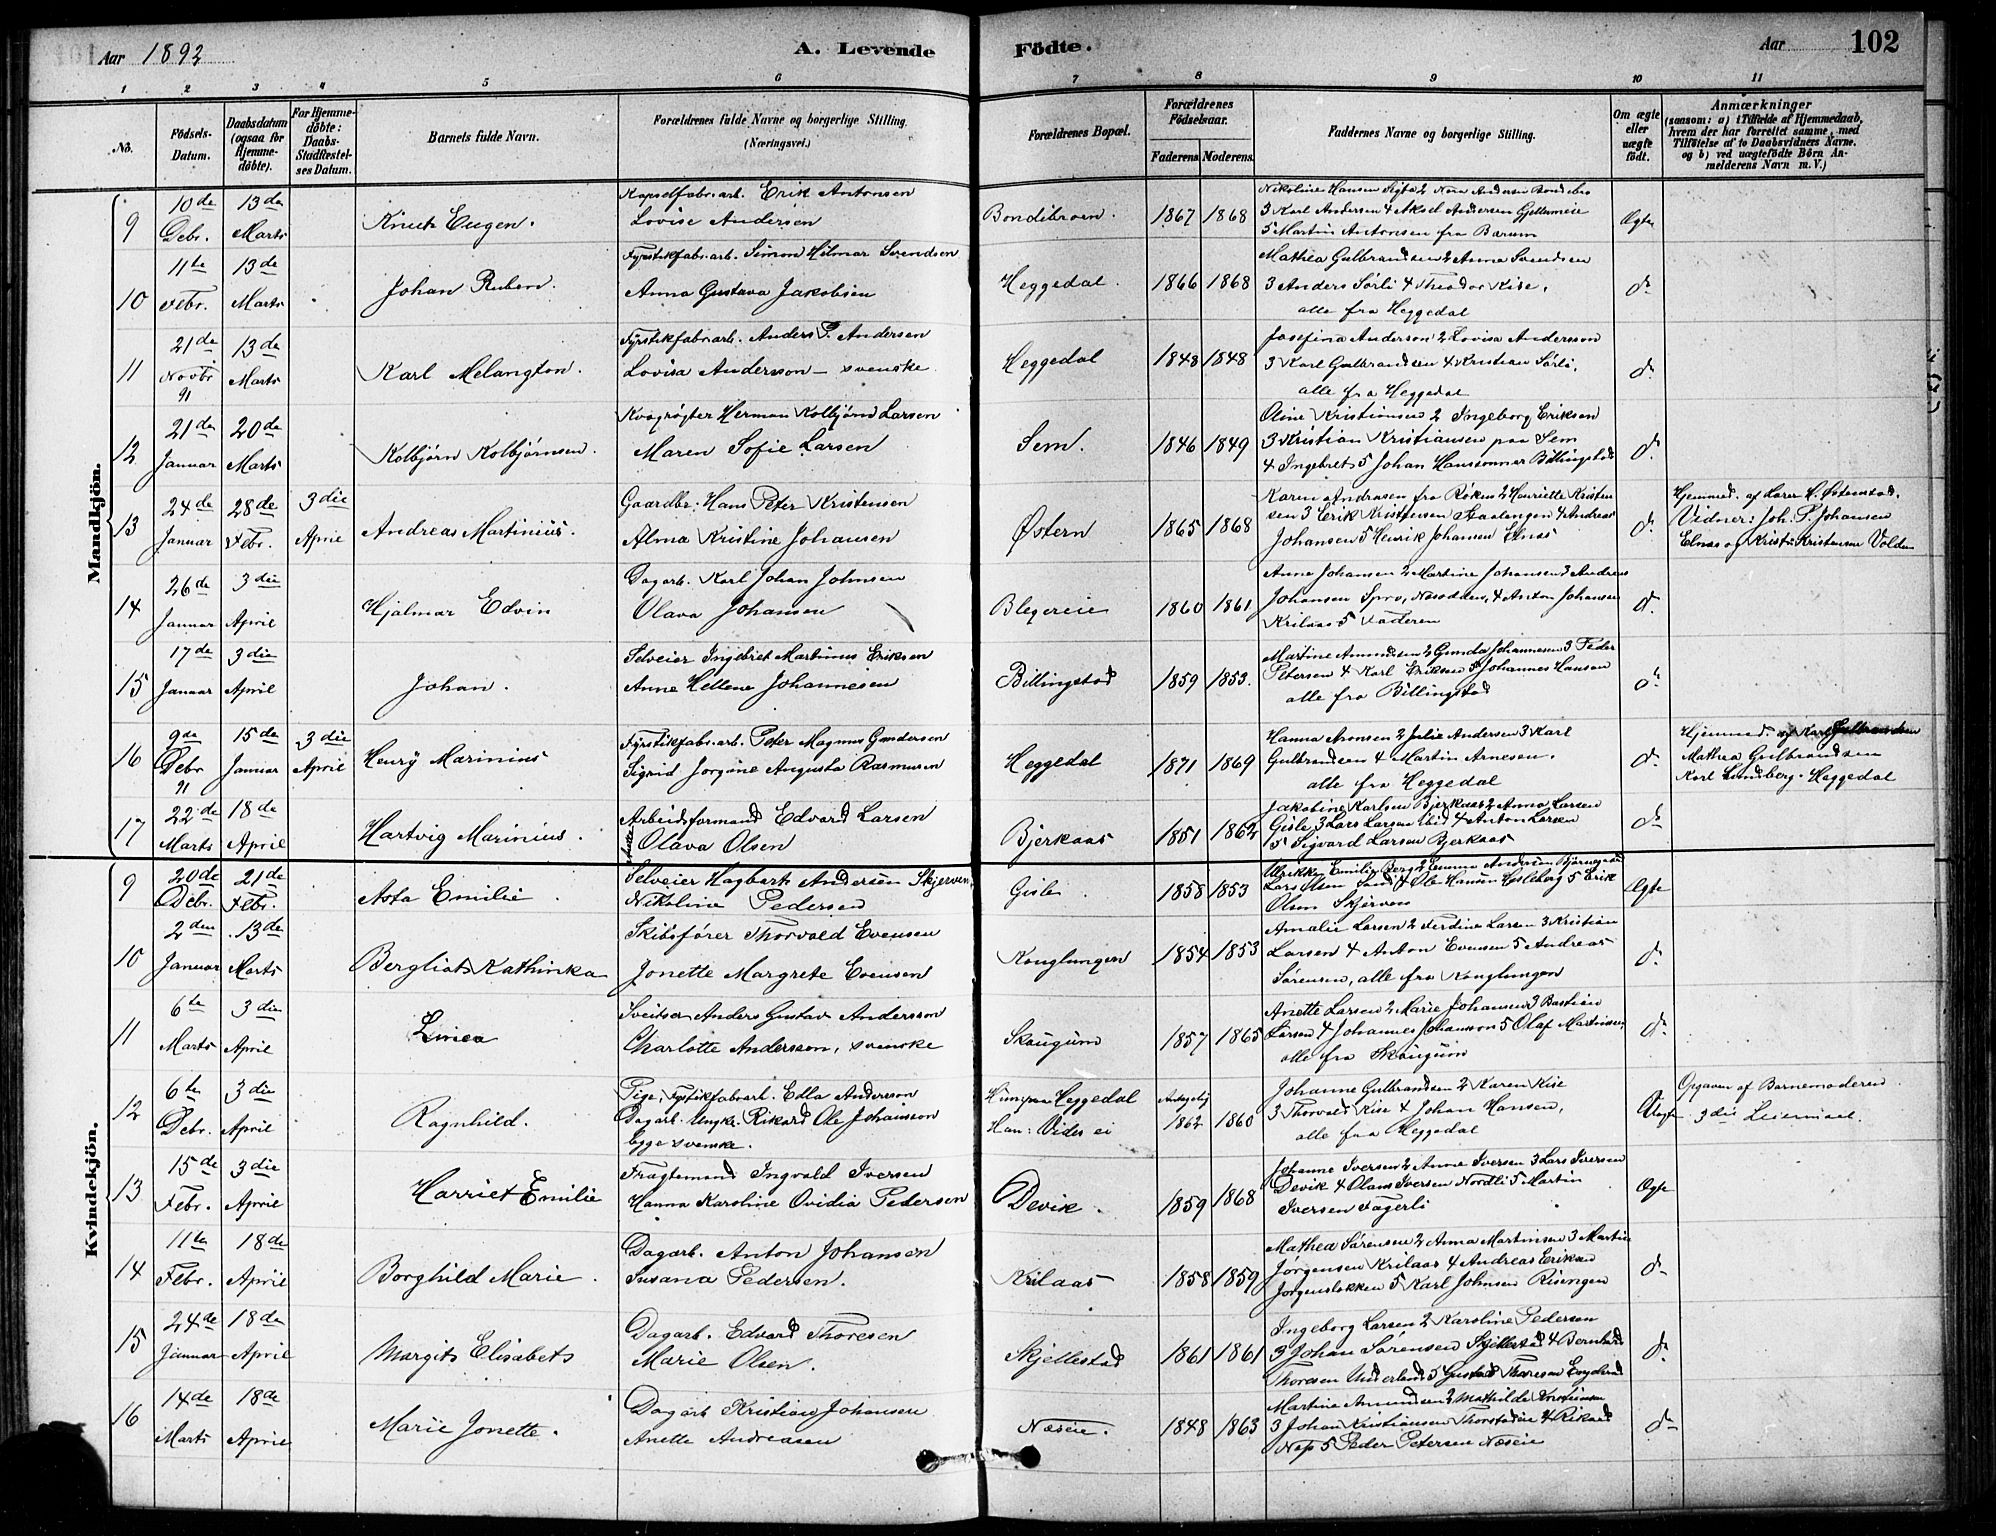 Aar 1892
A. Levende Födte.
Aar 102
1 2 3 4 5 6 7 8 9 10 11
No.
Födsels-Datum.
Daabsdatum (ogsaa for Hjemmedöbte).
For Hjemmedöbte: Daabs-Stadfæstelses Datum.
Barnets fulde Navn.
Forældrenes fulde Navne og borgerlige Stilling. (Næringsvei.)
Forældrenes Bopæl.
Forældrenes Födselsaar.
Faderens Moderens
Faddernes Navne og borgerlige Stilling.
Om ægte eller uægte födt.
Anmærkninger
(saasom: a) i Tilfælde af Hjemmedaab, hvem der har forrettet samme, med Tilföielse af to Daabsvidners Navne. og b) ved uægtefödte Börn Anmelderens Navn m. V.)
Mandkjön.
9 10de Debr. 13de Marts
Knut Eugen.
Kapselfabr.arb. Erik Antonsen
Lovise Andersen
Bondibroen. 1867 1868
3 Karl Andersen 4 Aksel Andersen Gjellumeie
5 Martin Antonsen fra Bærum
Ægte
10 11te Febr. 13de Marts
Johan Ruben.
Fyrstikfabr.arb. Simon Hilmar Svendsen
Anna Gustava Jakobsen
Heggedal. 1866 1868
Mathea Gulbrandsen 2 Anna Svendsen
3 Anders Sørli 4 Theodor Kise,
alle fra Heggedal
do
11 21de Novbr 91 13de Marts
Karl Melangton.
Fyrstikfabr.arb. Anders P. Andersen
Lovisa Andersson – svenske
Heggedal 1848 1848
Josefina Anderson 2 Lovisa Andersson
3 Karl Gulbrandsen 4 Kristian Sørli,
alle fra Heggedal
do
12 21de Januar 20de Marts
Kolbjørn Kolbjørnsen.
Kvægrøgter Herman Kolbjørn Larsen
Maren Sofie Larsen
Sem. 1846 1849
Oline Kristiansen 2 Ingeborg Eriksen
3 Kristian Kristiansen paa Sem
4 Ingebret 5 Johan Hanssønner Billingstad
do
13 24de Januar 28de Febr. 3die April
Andreas Martinius.
Gaardbr. Hans Peter Kristensen
Alma Kristine Johansen
Østern 1865 1868
Karen Andreasen fra Røken 2 Henriette Kristen
sen 3 Erik Kristensen Staalengen 4 Andreas
Johansen 5 Henrik Johansen Elnes
do
Hjemmed. af Lærer H. Østenstad.
Vidner: Joh. P. Johansen
Elnes og Krist. Kristensen Volden
14 26de Januar 3die April
Hjalmar Edvin
Dagarb. Karl Johan Johnsen
Olava Johansen
Blegereie 1860 1861
Anne Johansen 2 Martine Johansen 3 Andreas
Johansen Spro, Nesodden, 4 Anton Johansen
Krilaas 5 Faderen
do
15 17de Januar 3die April
Johan.
Selveier Ingebret Martinus Eriksen
Anne Hellene Johannesen
Billingstad 1859 1853.
Martine Amundsen 2 Gunda Johannesen 3 Peder
Petersen 4 Karl Eriksen 5 Johannes Hansen
alle fra Billingstad
do
16 9de Debr 91 15de Januar 3die April
Henry Marinius
Fyrstikfabr.arb. Peter Magnus Gundersen
Sigrid Jorgine Augusta Rasmusen
Heggedal 1871 1869
Hanna Aronsen 2 Julie Andersen 3 Karl
Gulbrandsen 4 Martin Arnesen.
alle fra Heggedal
do
Hjemmed. af Karl Gulbrandsen
Mathea Gulbrandsen
Karl Lundberg. Heggedal
17 22de Marts 18de April
Hartvig Marinius.
Arbeidsformand Edvard Larsen
Olava Olsen
Bjerkaas 1851 1862
Jakobine Karlsen Bjerkaas 2 Anna Larsen
Gisle 3 Lars Larsen ibid 4 Anton Larsen
5 Sigvard Larsen Bjerkaas
do
Kvindekjön.
9 20de Debr. 21de Febr.
Asta Emilie
Selveier Hagbart Andersen Skjerven
Nikoline Pedersen
Gisle 1858 1853
Ulrikke Emilie Berg 2 Emma Andersen
Lars Olsen 4 Ole Hansen Hesleberg 5 Erik
Olsen Skjerven
Ægte
10 2den Januar 13de Marts
Bergliot Kathinka
Skibsfører Thorvald Evensen
Jonette Margrete Evensen
Konglungen 1854 1853
Amalie Larsen 2 Ferdine Larsen 3 Kristian
Larsen 4 Anton Evensen 5 Andreas
Sørensen, alle fra Konglungen
do
11 6te Marts 3die April
Linea
Sveitser Anders Gustav Andersson
Charlotte Andersson, svenske
Skaugum 1857 1865
Anette Larsen 2 Marie Johansen 3 Bastian
Larsen 4 Johannes Johansson 5 Olaf Martinsen
alle fra Skaugum
do
12 6te Debr. 3die April
Ragnhild.
Pige, Fyrstikfabr.arb. Edla Andersson
Dagarb. Ungk. Rikard Ole Johansson
begge svenske.
Hun paa Heggedal
Han: Vides ei
Antagelig 1862 1860
Johanne Gulbrandsen 2 Karen Kise
3 Thorvald Kise 4 Johan Hansen,
alle fra Heggedal
Uægte
Opgaven af Barnemoderen.
3die Leiermaal.
13 15de Febr. 3die April
Harriet Emilie
Fragtemand Ingvald Iversen
Hanna Karoline Ovidia Pedersen
Devik. 1859 1868
Johanne Iversen 2 Anne Iversen 3 Lars Iversen
Devik 4 Olaus Iversen Nordli 5 Martin
Iversen Fagerli
Ægte
14 11te Febr. 18de April
Borghild Marie.
Dagarb. Anton Johansen
Susana Pedersen.
Krilaas 1858 1859
Mathea Sørensen 2 Anna Martinsen 3 Martin
Jørgensen Krilaas 4 Andreas Eriksen
Jørgensløkken 5 Karl Johnsen Risengen
do
15 24de Januar 18de April
Margit Elisabet
Dagarb. Edvard Thoresen
Marie Olsen.
Skjellestad 1861 1861
Ingeborg Larsen 2 Karoline Pedersen
3 Johan Sørensen Skjellestad 4 Bernhard
Thoresen Underland 5 Gustav Thoresen
do
16 14de Marts 18de April
Marie Jonette.
Dagarb Kristian Johansen
Anette Andreasen
Næseie. 1848 1863
Martine Amundsen 2 Mathilde Kristiansen
3 Johan Kristiansen 4 Rikard
Næs 5 Peder Petersen Næseie
do